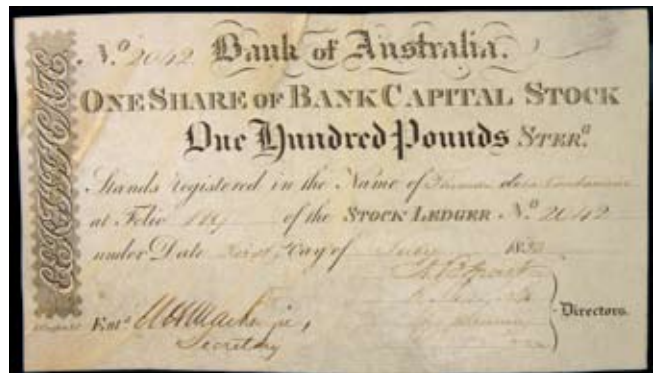 CERTIFICATE
N.º 2042 Bank of Australia.
ONE SHARE OF BANK CAPITAL STOCK
One Hundred Pounds STER.ᵍ
Stands registered in the Name of Thomas de la Condamine
at Folio of the STOCK LEDGER N.º 2042
under Date First Day of July 183
Directors.
Ent.ᵈ
Secretary